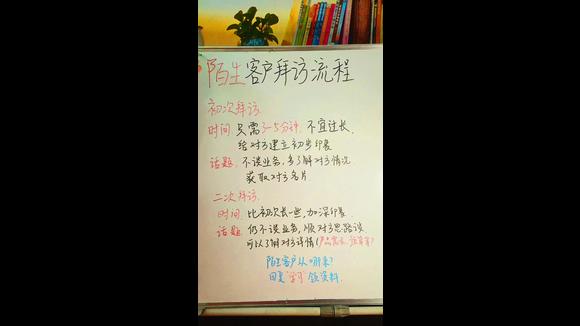 陌生客户拜访流程
初次拜访
时间 只需3-5分钟,不宜过长,
给对方建立初步印象
话题 不谈业务,多了解对方情况
获取对方名片
二次拜访
时间 比初次长一些,加深印象
话题 仍不谈业务,顺对方思路谈
可以了解对方详情(产品需求
陌生客户从哪来?
回复"学习"领资料